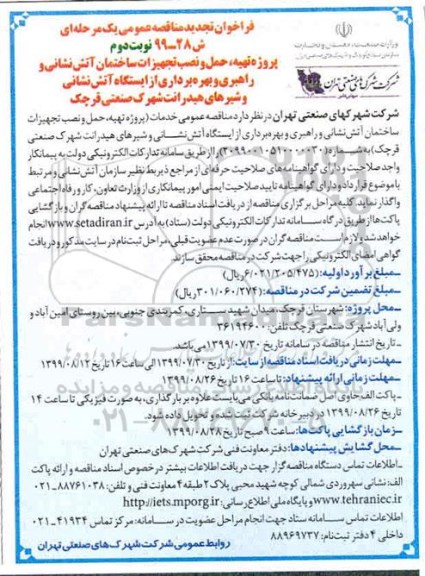 فراخوان تجدید مناقصه عمومی یک مرحله‌ای
ش ۲۸-۹۹ نوبت دوم
پروژه تهیه، حمل و نصب تجهیزات ساختمان آتش نشانی و
راهبری و بهره برداری از ایستگاه آتش نشانی
و شیرهای هیدرانت شهرک صنعتی قرچک
وزارت صنعت، معدن و تجارت
شرکت شهرک های صنعتی تهران
شرکت شهرکهای صنعتی تهران در نظر دارد مناقصه عمومی خدمات (پروژه تهیه، حمل و نصب تجهیزات
ساختمان آتش نشانی و راهبری و بهره برداری از ایستگاه آتش نشانی و شیرهای هیدرانت شهرک صنعتی
قرچک) به شماره را از طریق سامانه تدارکات الکترونیکی دولت به پیمانکار
واجد صلاحیت و دارای گواهینامه های صلاحیت حرفه ای از مراجع ذیربط نظیر سازمان آتش نشانی و مرتبط
با موضوع قرارداد و دارای گواهینامه تایید صلاحیت ایمنی امور پیمانکاری از وزارت تعاون، کار و رفاه اجتماعی
واگذار نماید. کلیه مراحل برگزاری مناقصه از دریافت اسناد مناقصه تا ارائه پیشنهاد مناقصه گران و بازگشایی
پاکت ها از طریق درگاه سامانه تدارکات الکترونیکی دولت (ستاد) به آدرس www.setadiran.ir انجام
خواهد شد و لازم است مناقصه گران در صورت عدم عضویت قبلی، مراحل ثبت نام در سایت مذکور و دریافت
گواهی امضای الکترونیکی را جهت شرکت در مناقصه محقق سازند.
ـ مبلغ برآورد اولیه: (۶/۰۲۱/۲۰۵/۴۷۵ ریال)
ـ مبلغ تضمین شرکت در مناقصه: (۳۰۱/۰۶۰/۲۷۴ ریال)
ـ محل پروژه: شهرستان قرچک، میدان شهید ستاری، کمربندی جنوبی، بین روستای امین آباد و
ولی آباد شهرک صنعتی قرچک تلفن: ۳۶۱۹۴۶۰۰
ـ تاریخ انتشار مناقصه در سامانه تاریخ ۱۳۹۹/۰۷/۳۰ می باشد.
ـ مهلت زمانی دریافت اسناد مناقصه از سایت: از تاریخ ۱۳۹۹/۰۷/۳۰ الی ساعت ۱۶ تاریخ ۱۳۹۹/۰۸/۱۲
ـ مهلت زمانی ارائه پیشنهاد: تا ساعت ۱۶ تاریخ ۱۳۹۹/۰۸/۲۶
ـ پاکت الف حاوی اصل ضمانت نامه بانکی می بایست علاوه بر بارگذاری، به صورت فیزیکی تا ساعت ۱۴
تاریخ ۱۳۹۹/۰۸/۲۶ در دبیرخانه شرکت ثبت شده و تحویل داده شود.
ـ زمان بازگشایی پاکت ها: ساعت ۹ صبح تاریخ ۱۳۹۹/۰۸/۲۸
ـ محل گشایش پیشنهادها: دفتر معاونت فنی شرکت شهرک های صنعتی تهران
ـ اطلاعات تماس دستگاه مناقصه گزار جهت دریافت اطلاعات بیشتر در خصوص اسناد مناقصه و ارائه پاکت
الف: نشانی سهروردی شمالی کوچه شهید محبی پلاک ۲ طبقه ۴ معاونت فنی و تلفن: ۸۸۷۶۱۰۳۸-۰۲۱
www.tehraniec.ir و پایگاه ملی اطلاع رسانی: http://iets.mporg.ir
اطلاعات تماس سامانه ستاد جهت انجام مراحل عضویت در سامانه: مرکز تماس ۴۱۹۳۴-۰۲۱
داخلی ۴ دفتر ثبت نام: ۸۸۹۶۹۷۳۷
روابط عمومی شرکت شهرک های صنعتی تهران